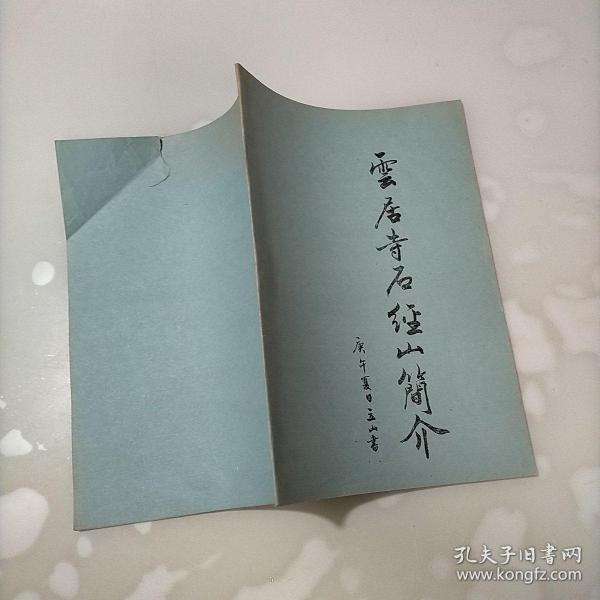 雲居寺石經山簡介
庚午夏日立山書
孔夫子旧書网
www.kongfz.com